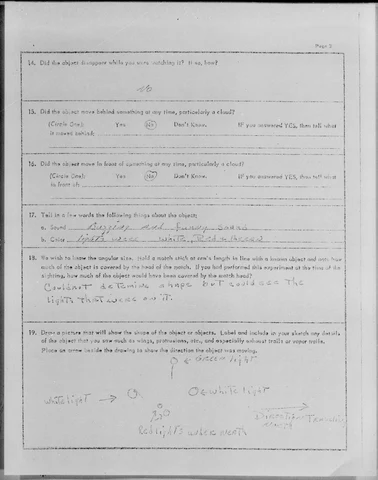 Page 3
14. Did the object disappear while you were watching it? If so, how?
No
15. Did the object move behind something at any time, particularly a cloud?
(Circle One): Yes No Don't Know. If you answered YES, then tell what
it moved behind:
16. Did the object move in front of something at any time, particularly a cloud?
(Circle One): Yes No Don't Know. If you answered YES, then tell what
in front of:
17. Tell in a few words the following things about the object:
a. Sound Buzzing and funny sound
b. Color lights were - white, Red & Green
18. We wish to know the angular size. Hold a match stick at arm's length in line with a known object and note how
much of the object is covered by the head of the match. If you had performed this experiment at the time of the
sighting, how much of the object would have been covered by the match head?
Couldn't determine shape but could see the
lights that were on it.
19. Draw a picture that will show the shape of the object or objects. Label and include in your sketch any details
of the object that you saw such as wings, protrusions, etc., and especially exhaust trails or vapor trails.
Place an arrow beside the drawing to show the direction the object was moving.
Green light
white light
white light
Direction Traveling
Red lights